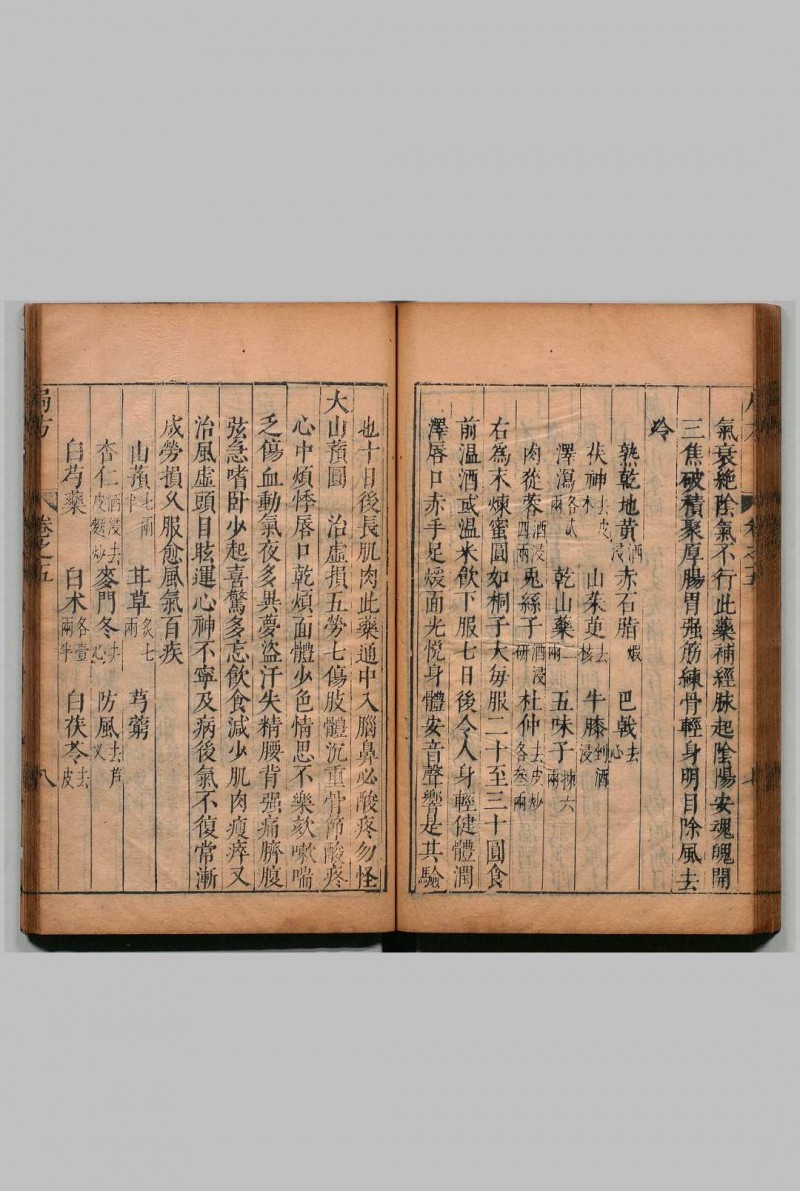 氣衰絶陰氣不行此藥補經脉起陰陽安魂魄開
三焦破積聚厚腸胃强筋練骨輕身明目除風去
冷
熟乾地黄酒浸 赤石脂煅 巴戟去心
茯神去皮木 山茱萸去核 牛膝剉酒浸
澤瀉各貳兩 乾山藥二兩 五味子揀六兩
肉從蓉酒浸四兩 兎絲子酒浸研 杜仲去皮炒各叁兩
右爲末煉蜜圓如桐子大每服二十至三十圓食
前温酒或温米飲下服七日後令人身輕健體潤
澤唇口赤手足煖面光悦身體安音聲響是其驗
也十日後長肌肉此藥通中入腦鼻必酸疼勿怪
大山蕷圓 治虛損五勞七傷肢體沉重骨節酸疼
心中煩悸唇口乾煩面體少色情思不樂欬嗽喘
乏傷血動氣夜多異夢盜汗失精腰背强痛臍腹
弦急嗜卧少起喜驚多忘飲食減少肌肉瘦瘁又
治風虛頭目眩運心神不寧及病後氣不復常漸
成勞損又服愈風氣百疾
山蕷七兩半 甘草炙七兩 芎藭
杏仁酒浸去皮麩炒 麥門冬去心 防風去芦叉
白芍藥 白术各壹兩半 白茯苓去皮
局方 卷之五 八